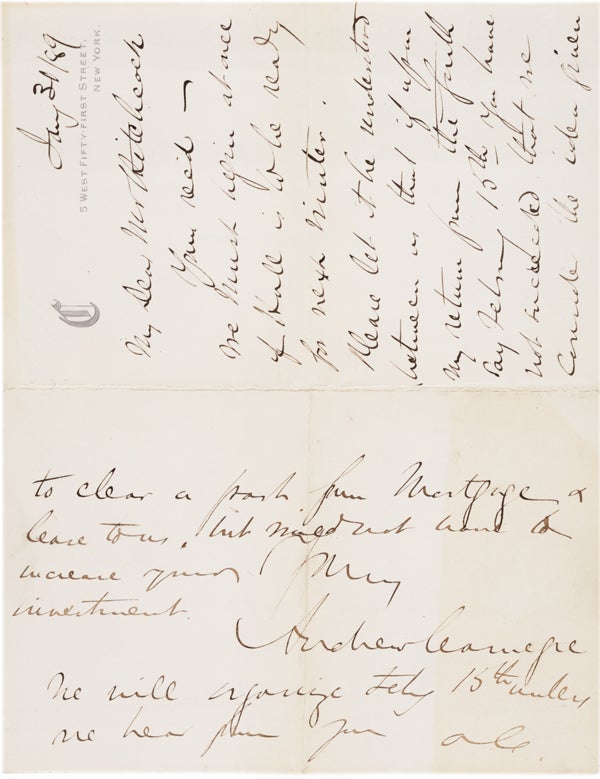 Jany 31/89
5 WEST FIFTY-FIRST STREET,
NEW YORK.
C
My Dear Mr Hitchcock
Yours recd —
We must begin at once
if Hall is to be ready
for next winter.
Please let it be understood
between us that if upon
my return from the South
say Feby 15th You have
not succeeded that we
consider the idea given
to clear a part from Mortgage &
lease to us, but not have to
increase your
investment.
Andrew Carnegie
We will organize Feby 15th unless
we hear from you
AC.